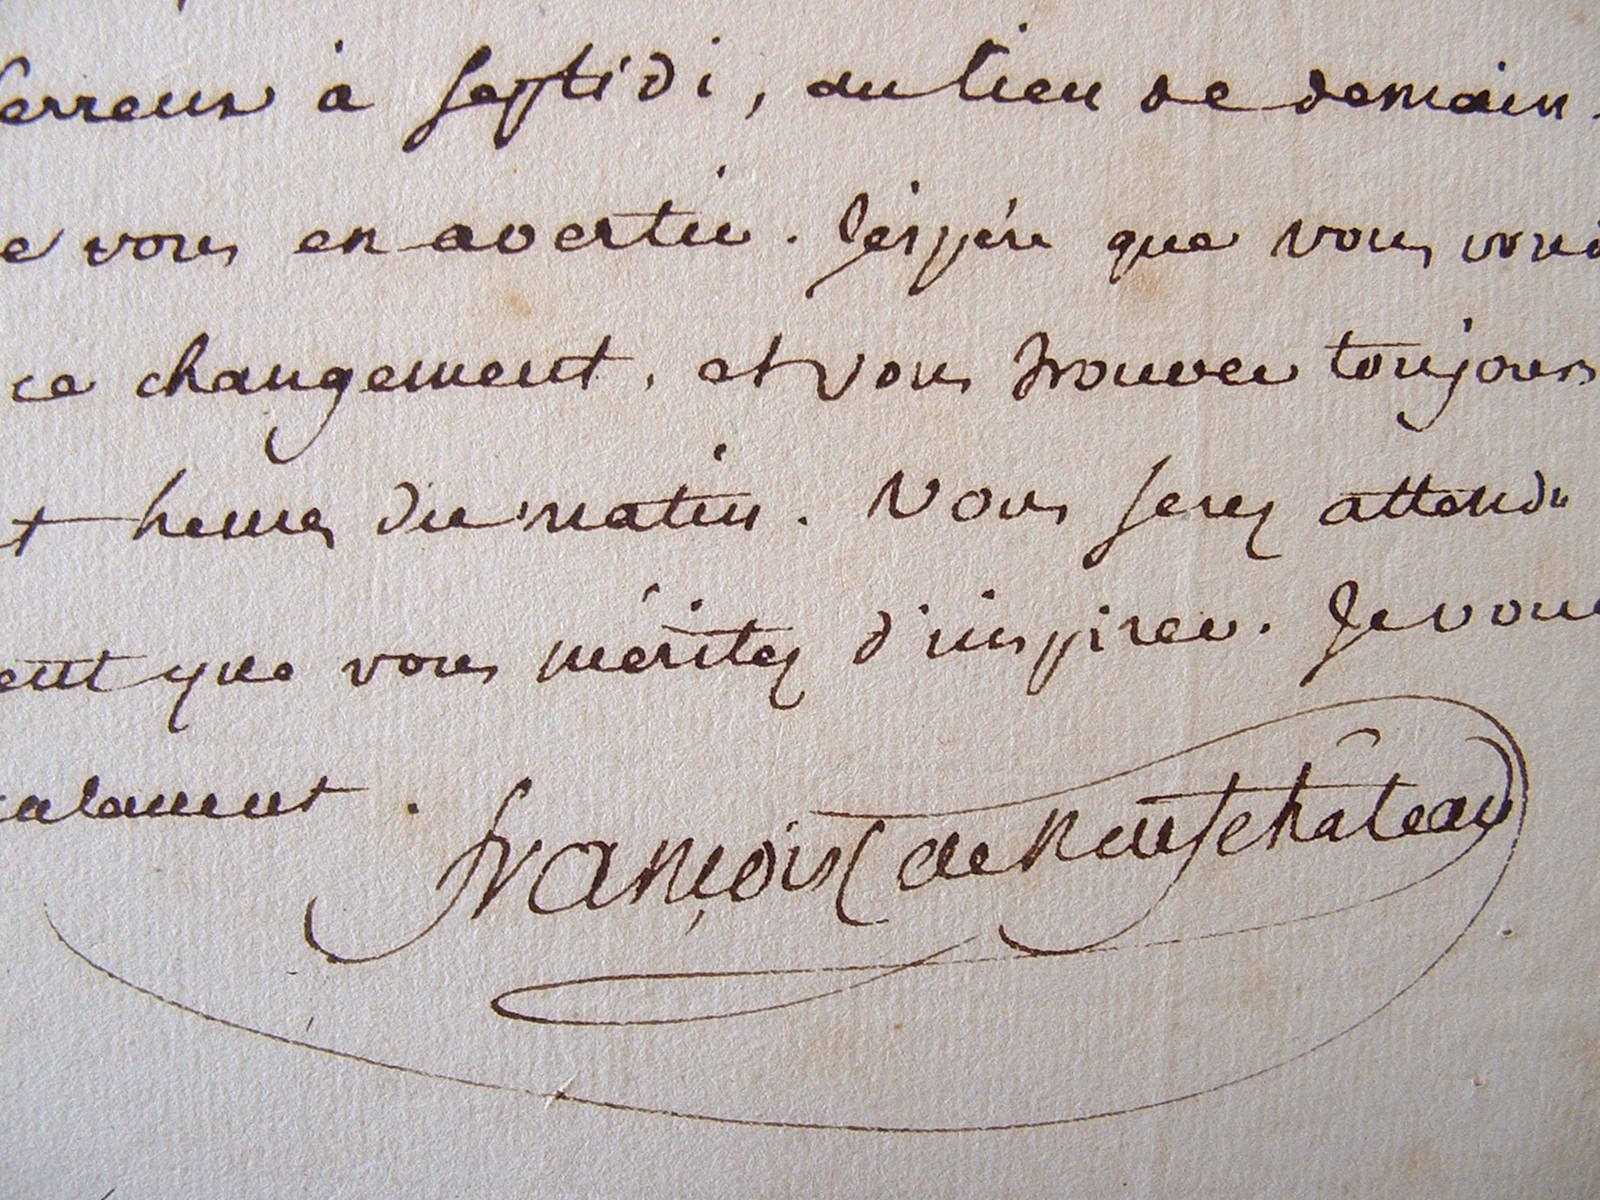 ferreux à septidi, au lieu de demain.
e vous en avertir. J'espère que vous voud
ce changement, et vous trouver toujours
t heures du matin. Vous serez attendu
ent que vous méritez d'inspirer. Je vous
alament.
François de Neufchâteau